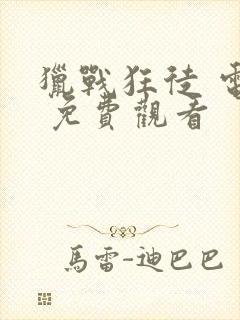 獵戰狂徒 電
免費觀看
馬雷-迪巴巴